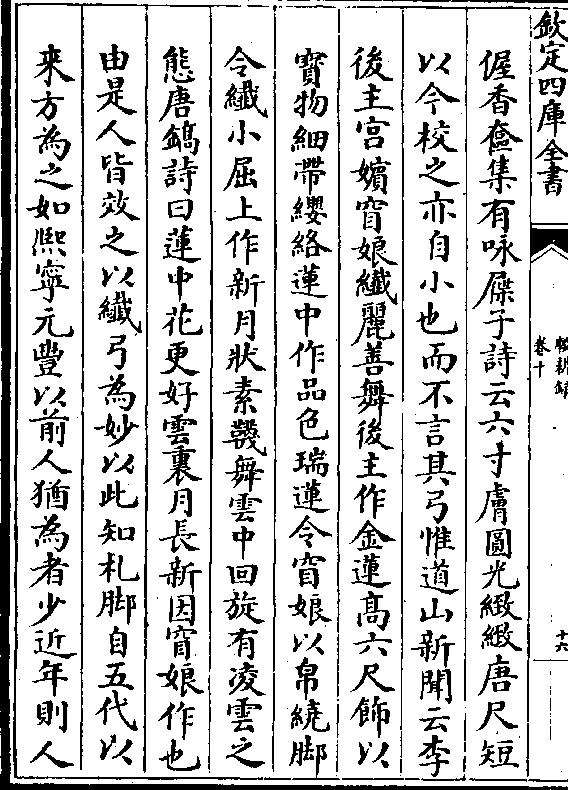 欽定四庫全書
輟耕錄
卷十
十六
偓香奩集有咏屧子詩云六寸膚圓光緻緻唐尺短
以今校之亦自小也而不言其弓惟道山新聞云李
後主宮嬪窅娘纎麗善舞後主作金蓮高六尺飾以
寳物細帶纓絡蓮中作品色瑞蓮令窅娘以帛繞脚
令纎小屈上作新月狀素韈舞雲中回旋有凌雲之
態唐鎬詩曰蓮中花更好雲裏月長新因窅娘作也
由是人皆效之以纎弓為妙以此知札脚自五代以
来方為之如熈寧元豐以前人猶為者少近年則人